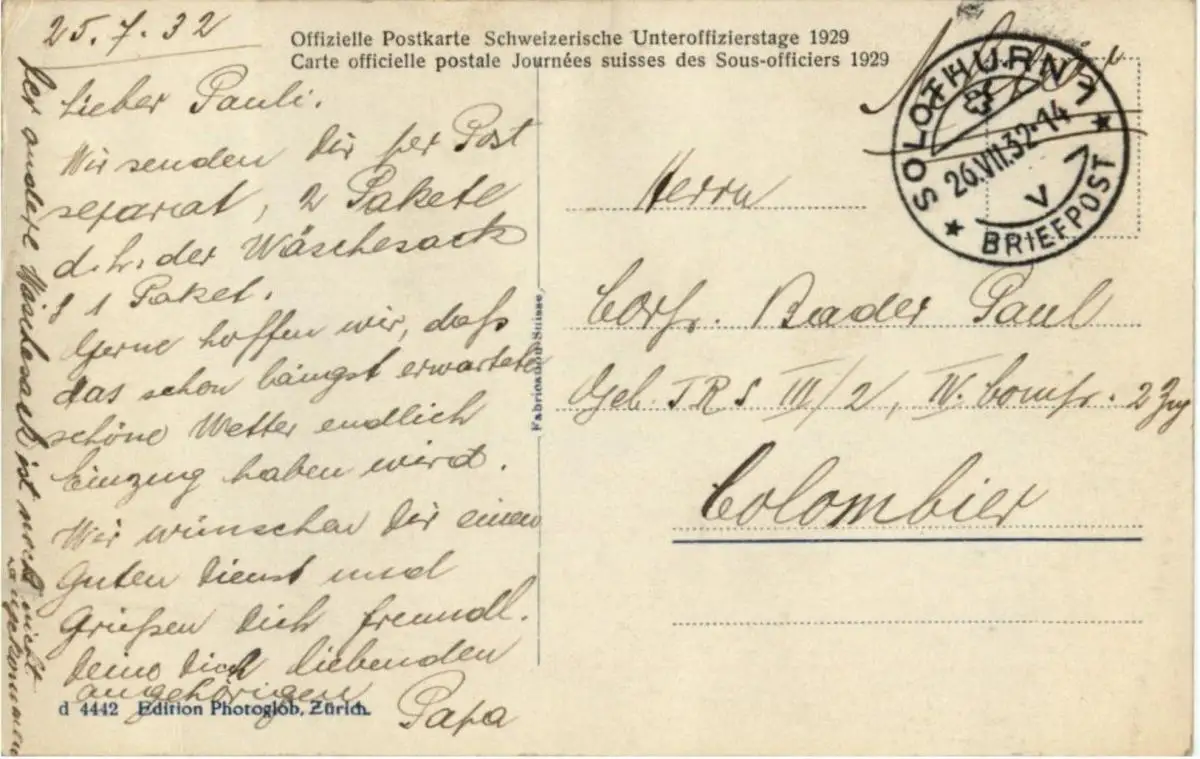 25.7.32
Offizielle Postkarte Schweizerische Unteroffizierstage 1929
Carte officielle postale Journées suisses des Sous-officiers 1929
Lieber Pauli.
Wir senden Dir per Post
separat, 2 Pakete
d.h. der Wäschesack
& 1 Paket.
Gerne hoffen wir, daß
das schon längst erwartete
schöne Wetter endlich
Einzug haben wird.
Wir wünschen Dir einen
guten Dienst und
Grüßen Dich freundl.
Deine Dich liebenden
angehörigen
Papa
Der andere Wäschesack ist noch nicht
angekommen
d 4442 Edition Photoglob, Zürich.
Fabrication Suisse
SOLOTHURN 1
26.VII.32-14
V
BRIEFPOST
Herrn
Corp. Bader Paul
Geb. I R S III/2, IV. Comp. 2 Zug
Colombier